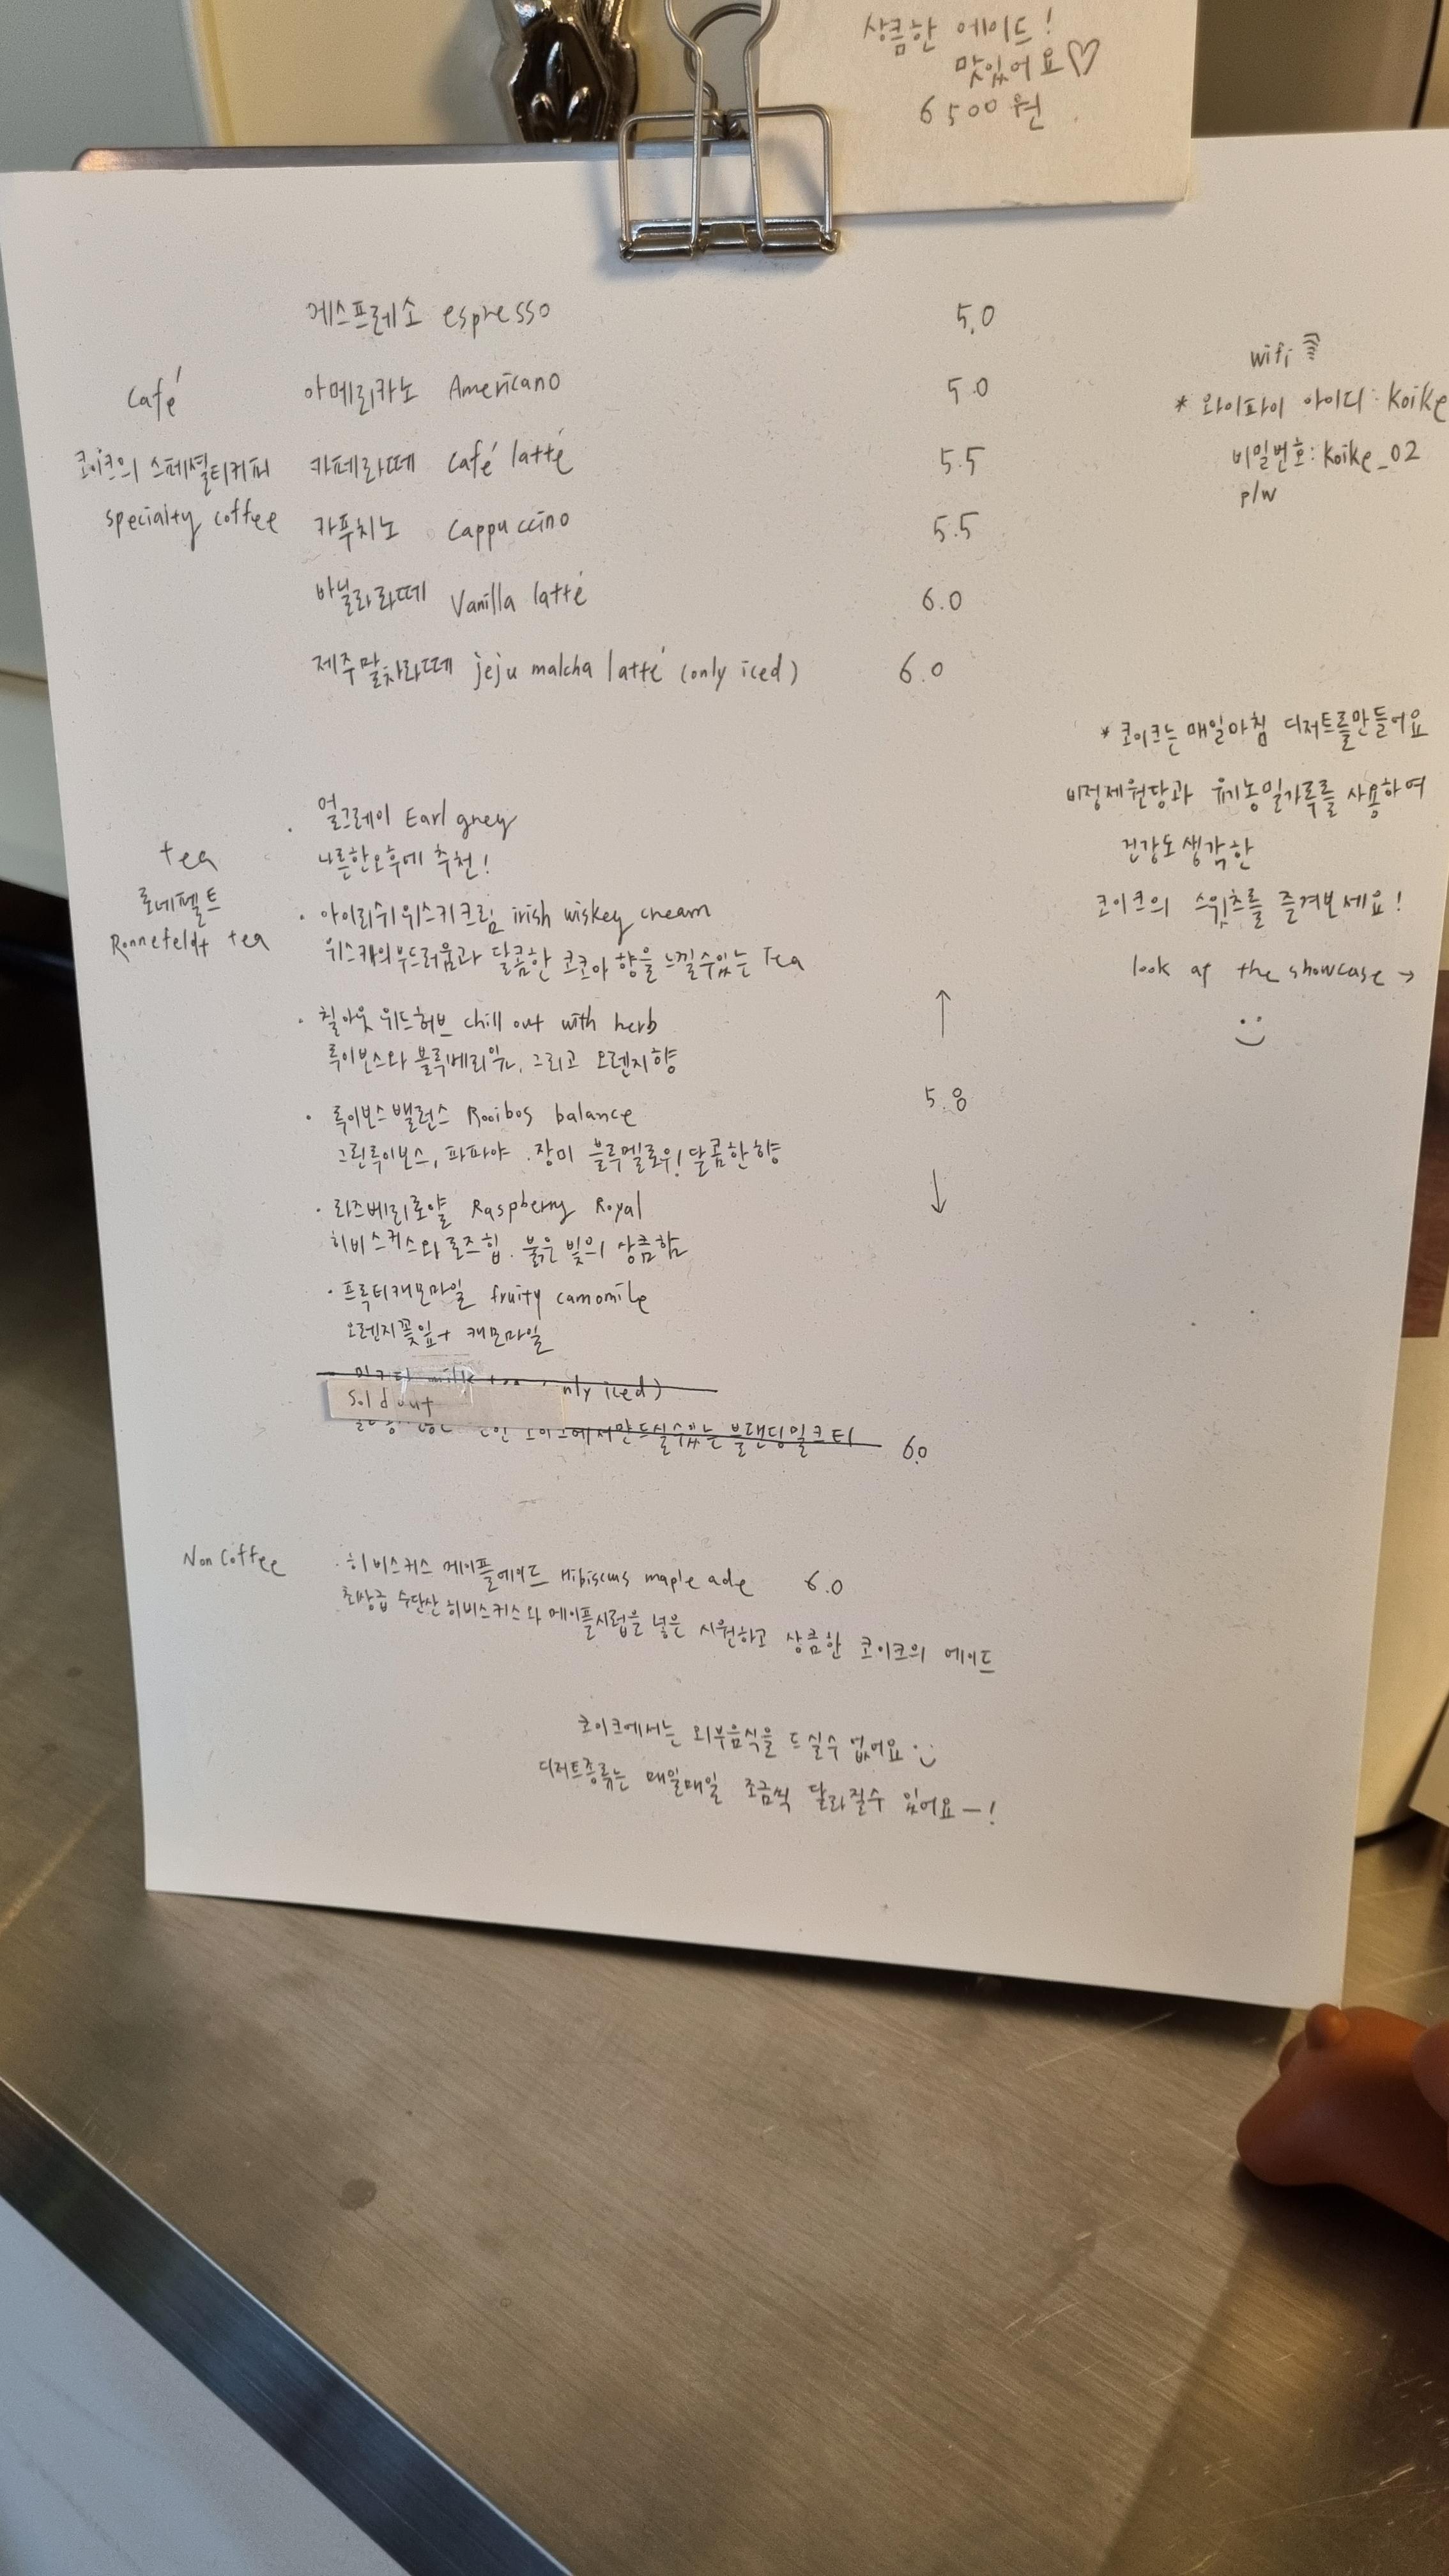 상큼한 에이드!
맛있어요♡
6500원
에스프레소 espresso 5.0
café
아메리카노 Americano 5.0
코이크의 스페셜티커피
specialty coffee
카페라떼 café latté 5.5
카푸치노 cappuccino 5.5
바닐라라떼 Vanilla latté 6.0
제주말차라떼 jeju malcha latté (only iced) 6.0
wifi
* 와이파이 아이디: Koike
비밀번호: Koike_02
p/w
* 코이크는 매일아침 디저트를만들어요
비정제원당과 유기농밀가루를 사용하여
건강도생각한
코이크의 스윗츠를 즐겨보세요!
look at the showcase →
tea
로네펠트
Ronnefeldt tea
· 얼그레이 Earl grey
나른한오후에 추천!
· 아이리쉬위스키크림 irish wiskey cream
위스키의부드러움과 달콤한 코코아 향을 느낄수있는 Tea
· 칠아웃 위드허브 chill out with herb
루이보스와 블루베리잎, 그리고 오렌지향
↑
5.8
↓
· 루이보스밸런스 Rooibos balance
그린루이보스, 파파야. 장미 블루멜로우! 달콤한향
· 라즈베리로얄 Raspberry Royal
히비스커스와 로즈힙. 붉은 빛의 상큼함
· 프루티캐모마일 fruity camomile
오렌지꽃잎+ 캐모마일
밀크티 milk tea only iced)
sold out
에서만드실수있는 블랜딩밀크티 6.0
Non Coffee
· 히비스커스 메이플에이드 Hibiscus maple ade 6.0
최상급 수단산히비스커스와 메이플시럽을 넣은 시원하고 상큼한 코이크의 에이드
코이크에서는 외부음식을 드실수 없어요
디저트종류는 매일매일 조금씩 달라질수 있어요—!